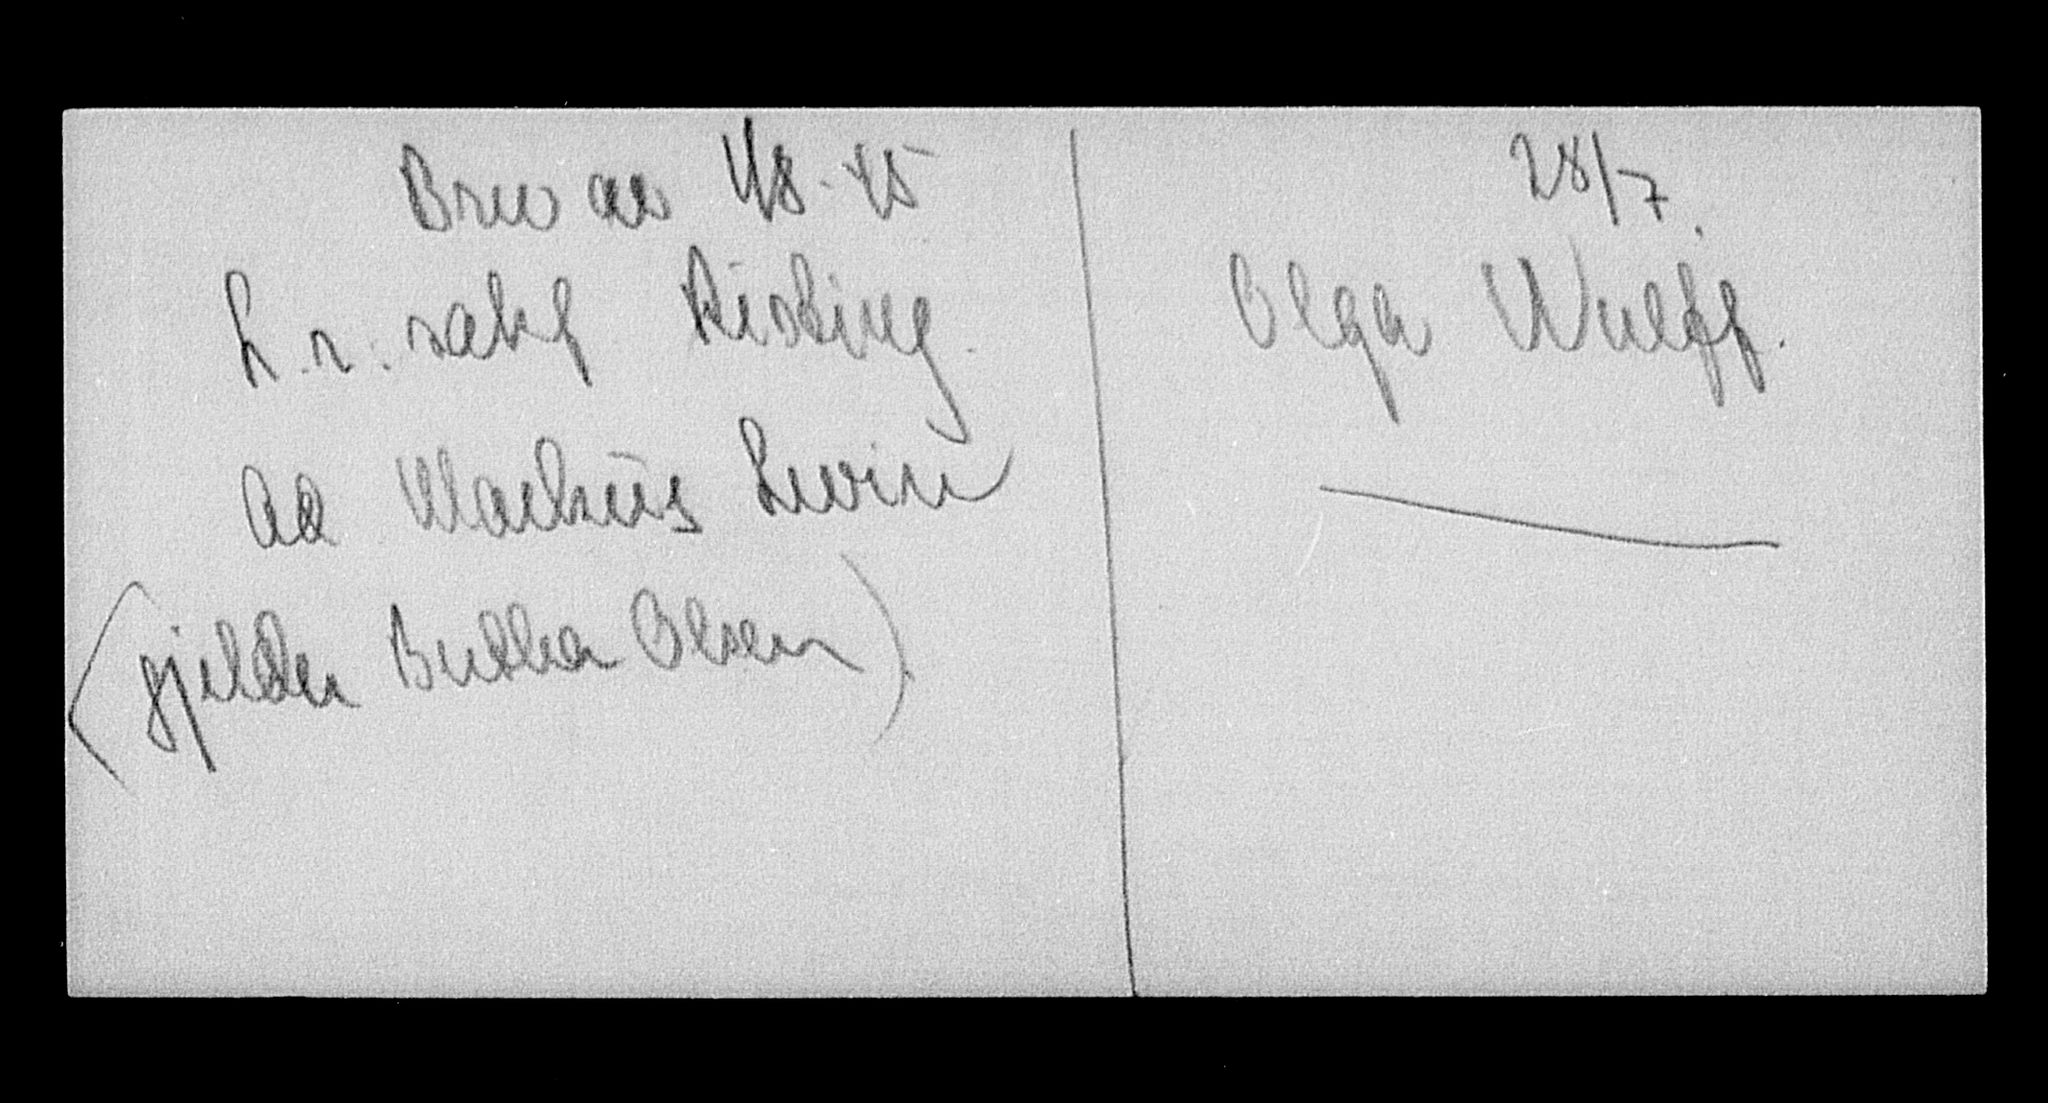 Brev av 4/8-45
L.r.sakf Risting.
ad Markus Levin
(gjelder Berta Olsen)
28/7.
Olga Wulff.